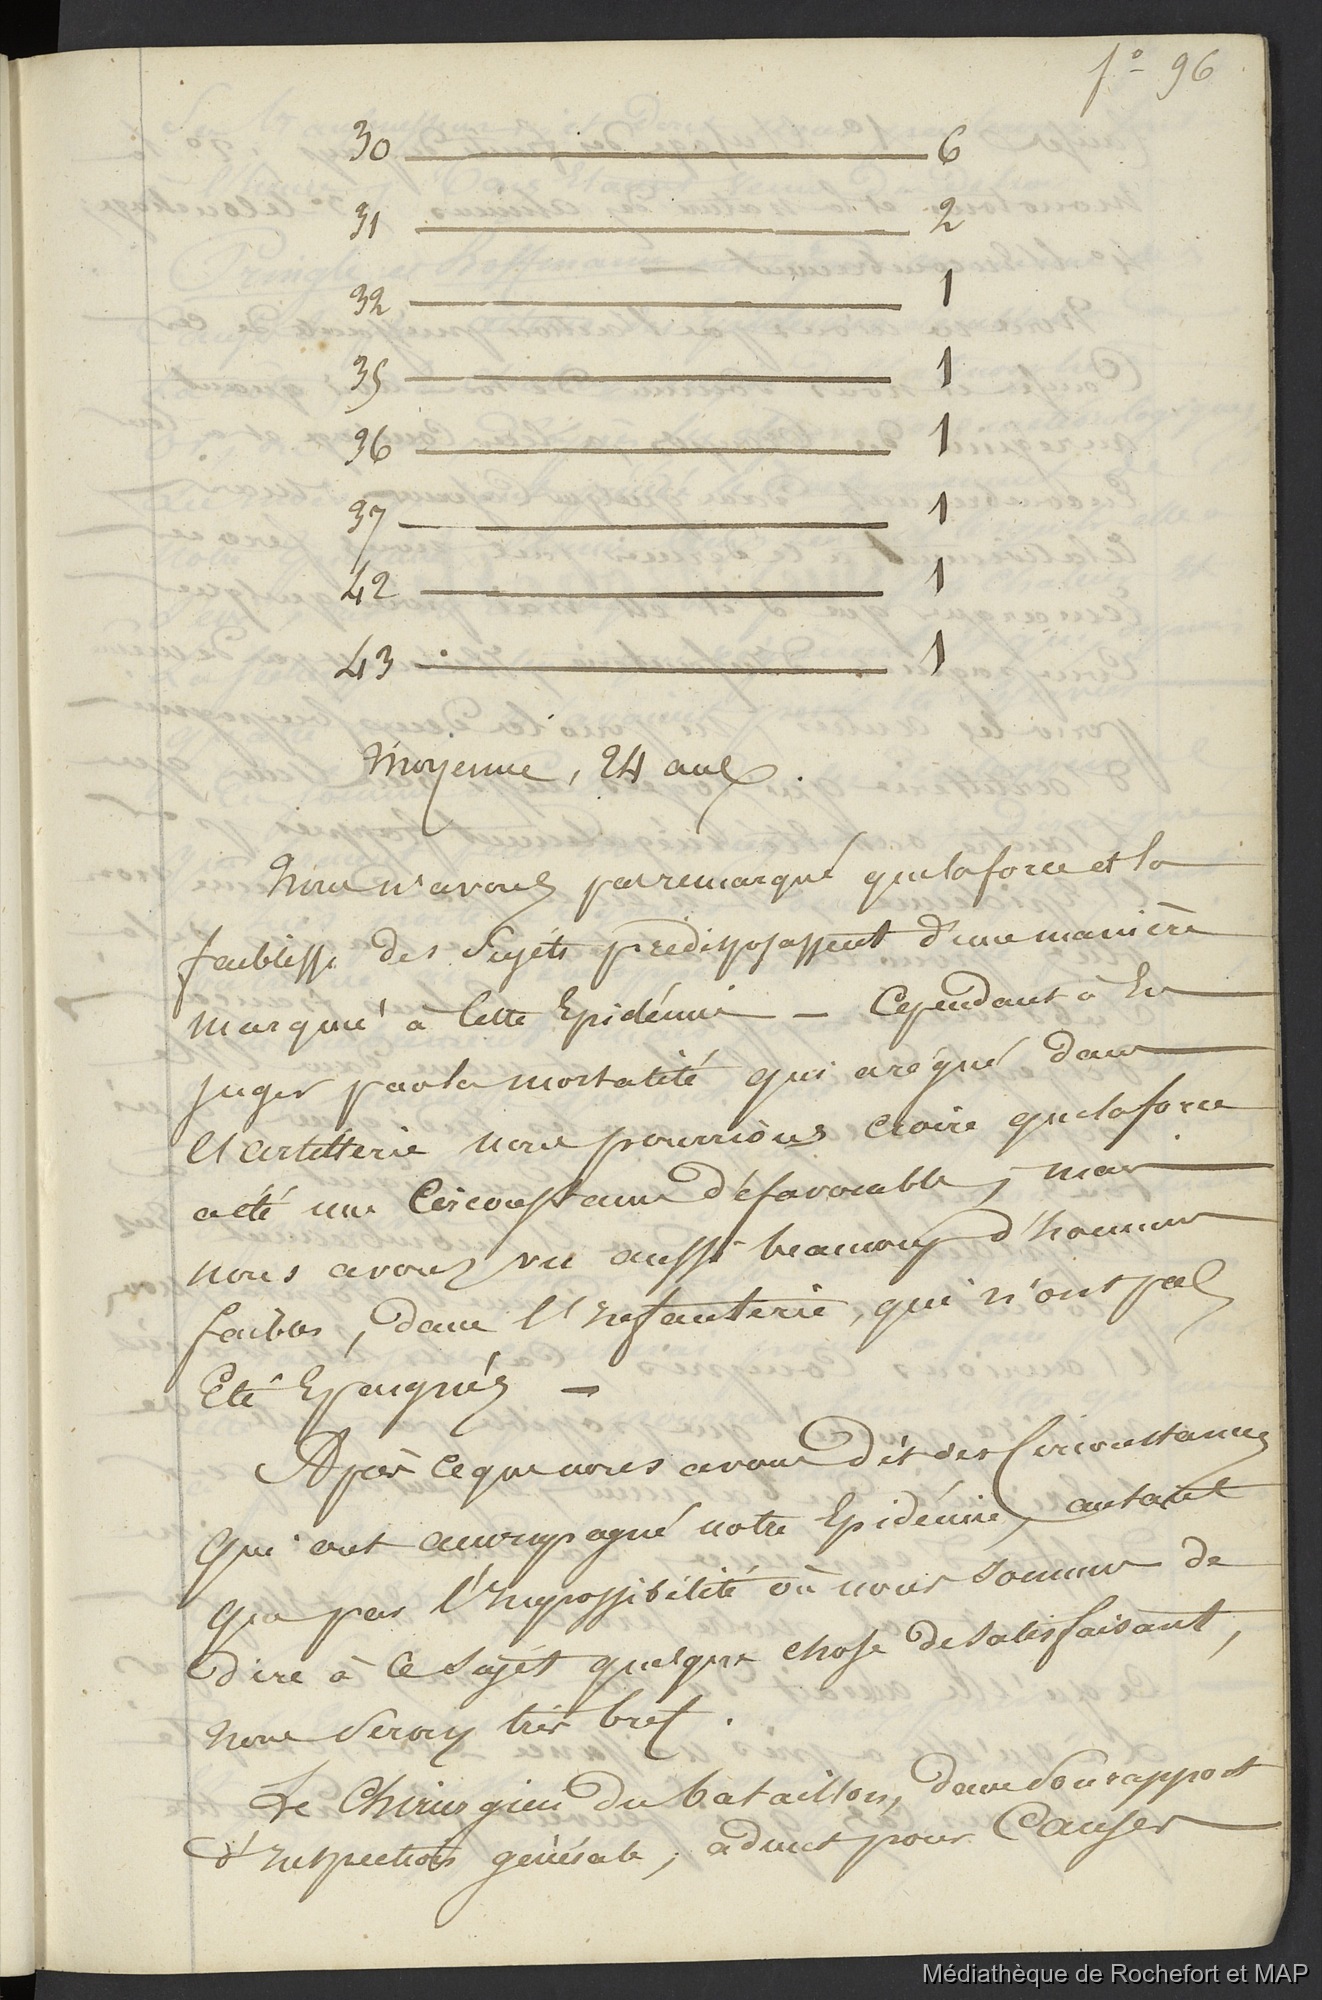 fo 96
30 — 6
31 — 2
32 — 1
35 — 1
36 — 1
37 — 1
42 — 1
43 — 1
Moyenne, 24 ans.
Nous n'avons pas remarqué que la force et la
faiblesse des sujéts prédisposassent d'une manière
marquée à cette Epidémie — Cependant à En
juger par la mortalité qui a régné dans
l'artillerie nous pourrions croire que la force
a été une Circonstance défavorable, mais
nous avons vu aussi beaucoup d'hommes
faibles, dans l'Infanterie, qui n'ont pas
Eté Epargnés —
Après ce que nous avons dit des Circonstances
qui ont accompagné notre Epidémie, autant
que par l'Impossibilité où nous sommes de
dire à ce sujét quelque chose de satisfaisant,
nous serons très bref.
Le Chirurgien du bataillon, dans son rapport
d'Inspection générale, admet pour Causes
Médiathèque de Rochefort et MAP